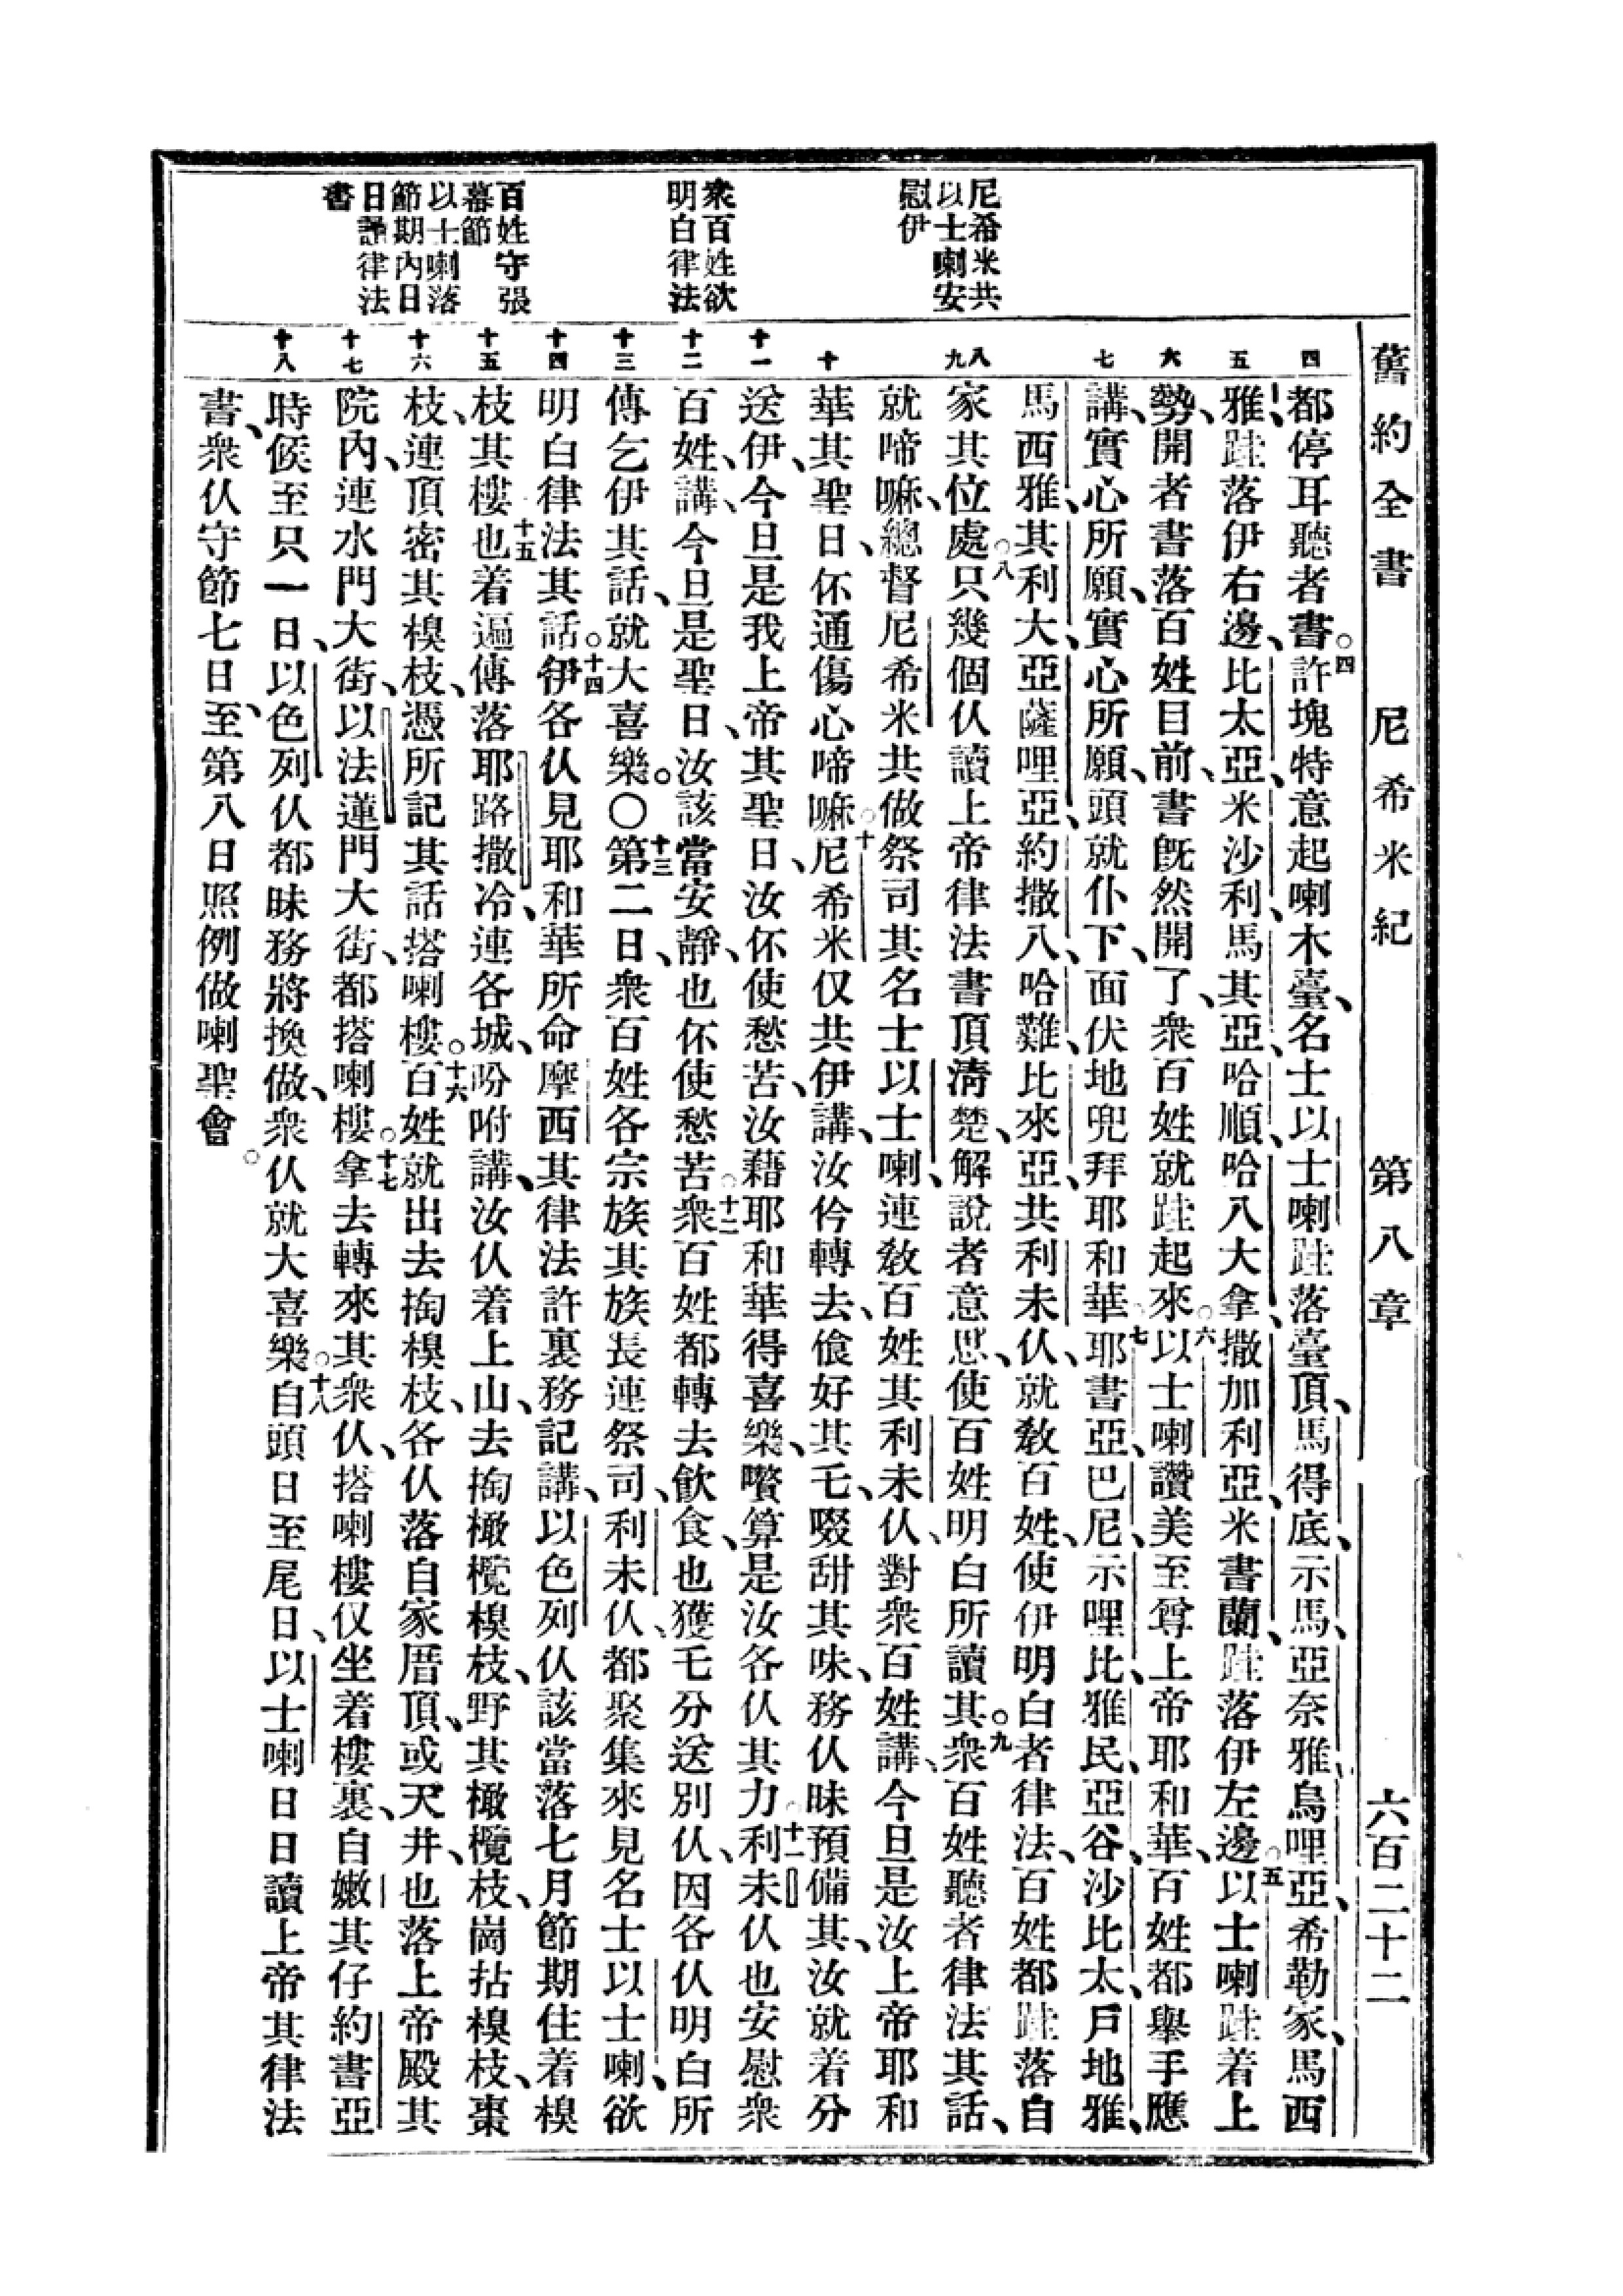 舊約全書　尼希米紀　第八章　六百二十二
尼希米共
以士喇安
慰伊
衆百姓欲
明白律法
百姓守張
幕節
以士喇落
節期內日
日讀律法
書
四
五
六
七
八
九
十
十一
十二
十三
十四
十五
十六
十七
十八
都停耳聽者書。四許塊特意起喇木臺、名士以士喇𨀣落臺頂、馬得底、示馬、亞奈雅、烏哩亞、希勒家、馬西
雅、𨀣落伊右邊、比太亞、米沙利、馬其亞、哈順、哈八大拿、撒加利亞、米書蘭、𨀣落伊左邊。五以士喇𨀣着上
勢、開者書落百姓目前、書旣然開了、衆百姓就𨀣起來。六以士喇讚美至尊上帝耶和華、百姓都舉手應
講、實心所願、實心所願、頭就仆下、面伏地兜拜耶和華。七耶書亞、巴尼、示哩比、雅民、亞谷、沙比太、戶地雅、
馬西雅、其利大、亞薩哩亞、約撒八、哈難、比來亞、共利未仈、就敎百姓、使伊明白者律法、百姓都𨀣落自
家其位處。八只幾個仈讀上帝律法書頂淸楚、解說者意思、使百姓明白所讀其。九衆百姓聽者律法其話、
就啼嘛、總督尼希米共做祭司其名士以士喇、連敎百姓其利未仈、對衆百姓講、今旦是汝上帝耶和
華其聖日、伓通傷心啼嘛。十尼希米仅共伊講、汝伶轉去、飡好其乇、啜甜其味、務仈昧預備其、汝就着分
送伊、今旦是我上帝其聖日、汝伓使愁苦、汝藉耶和華得喜樂、嚽算是汝各仈其力。十一利未仈也安慰衆
百姓、講、今旦是聖日、汝該當安靜、也伓使愁苦。十二衆百姓都轉去飮食、也獲乇分送別仈、因各仈明白所
傳乞伊其話、就大喜樂。〇十三第二日、衆百姓各宗族其族長連祭司、利未仈、都聚集來見名士以士喇、欲
明白律法其話。十四伊各仈見耶和華所命摩西其律法許裏務記講、以色列仈該當落七月節期住着模
枝其樓也。十五着遍傳落耶路撒冷、連各城、吩咐講、汝仈着上山、去掏橄欖模枝、野其橄欖枝、崗拈模枝、棗
枝、連頂密其模枝、憑所記其話搭喇樓。十六百姓就出去掏模枝、各仈落自家厝頂、或天井、也落上帝殿其
院內、連水門大街、以法蓮門大街、都搭喇樓。十七拿去轉來其衆仈、搭喇樓仅坐着樓裏、自嫩其仔約書亞
時候至只一日、以色列仈都昧務將換做、衆仈就大喜樂。十八自頭日至尾日、以士喇日日讀上帝其律法
書、衆仈守節七日、至第八日照例做喇聖會。